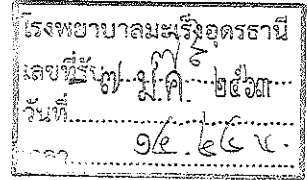 โรงพยาบาลมะเร็งอุดรธานี
เลขที่รับ
- ๗ ม.ค. ๒๕๖๓
วันที่
เวลา ๑๕.๔๔ น.